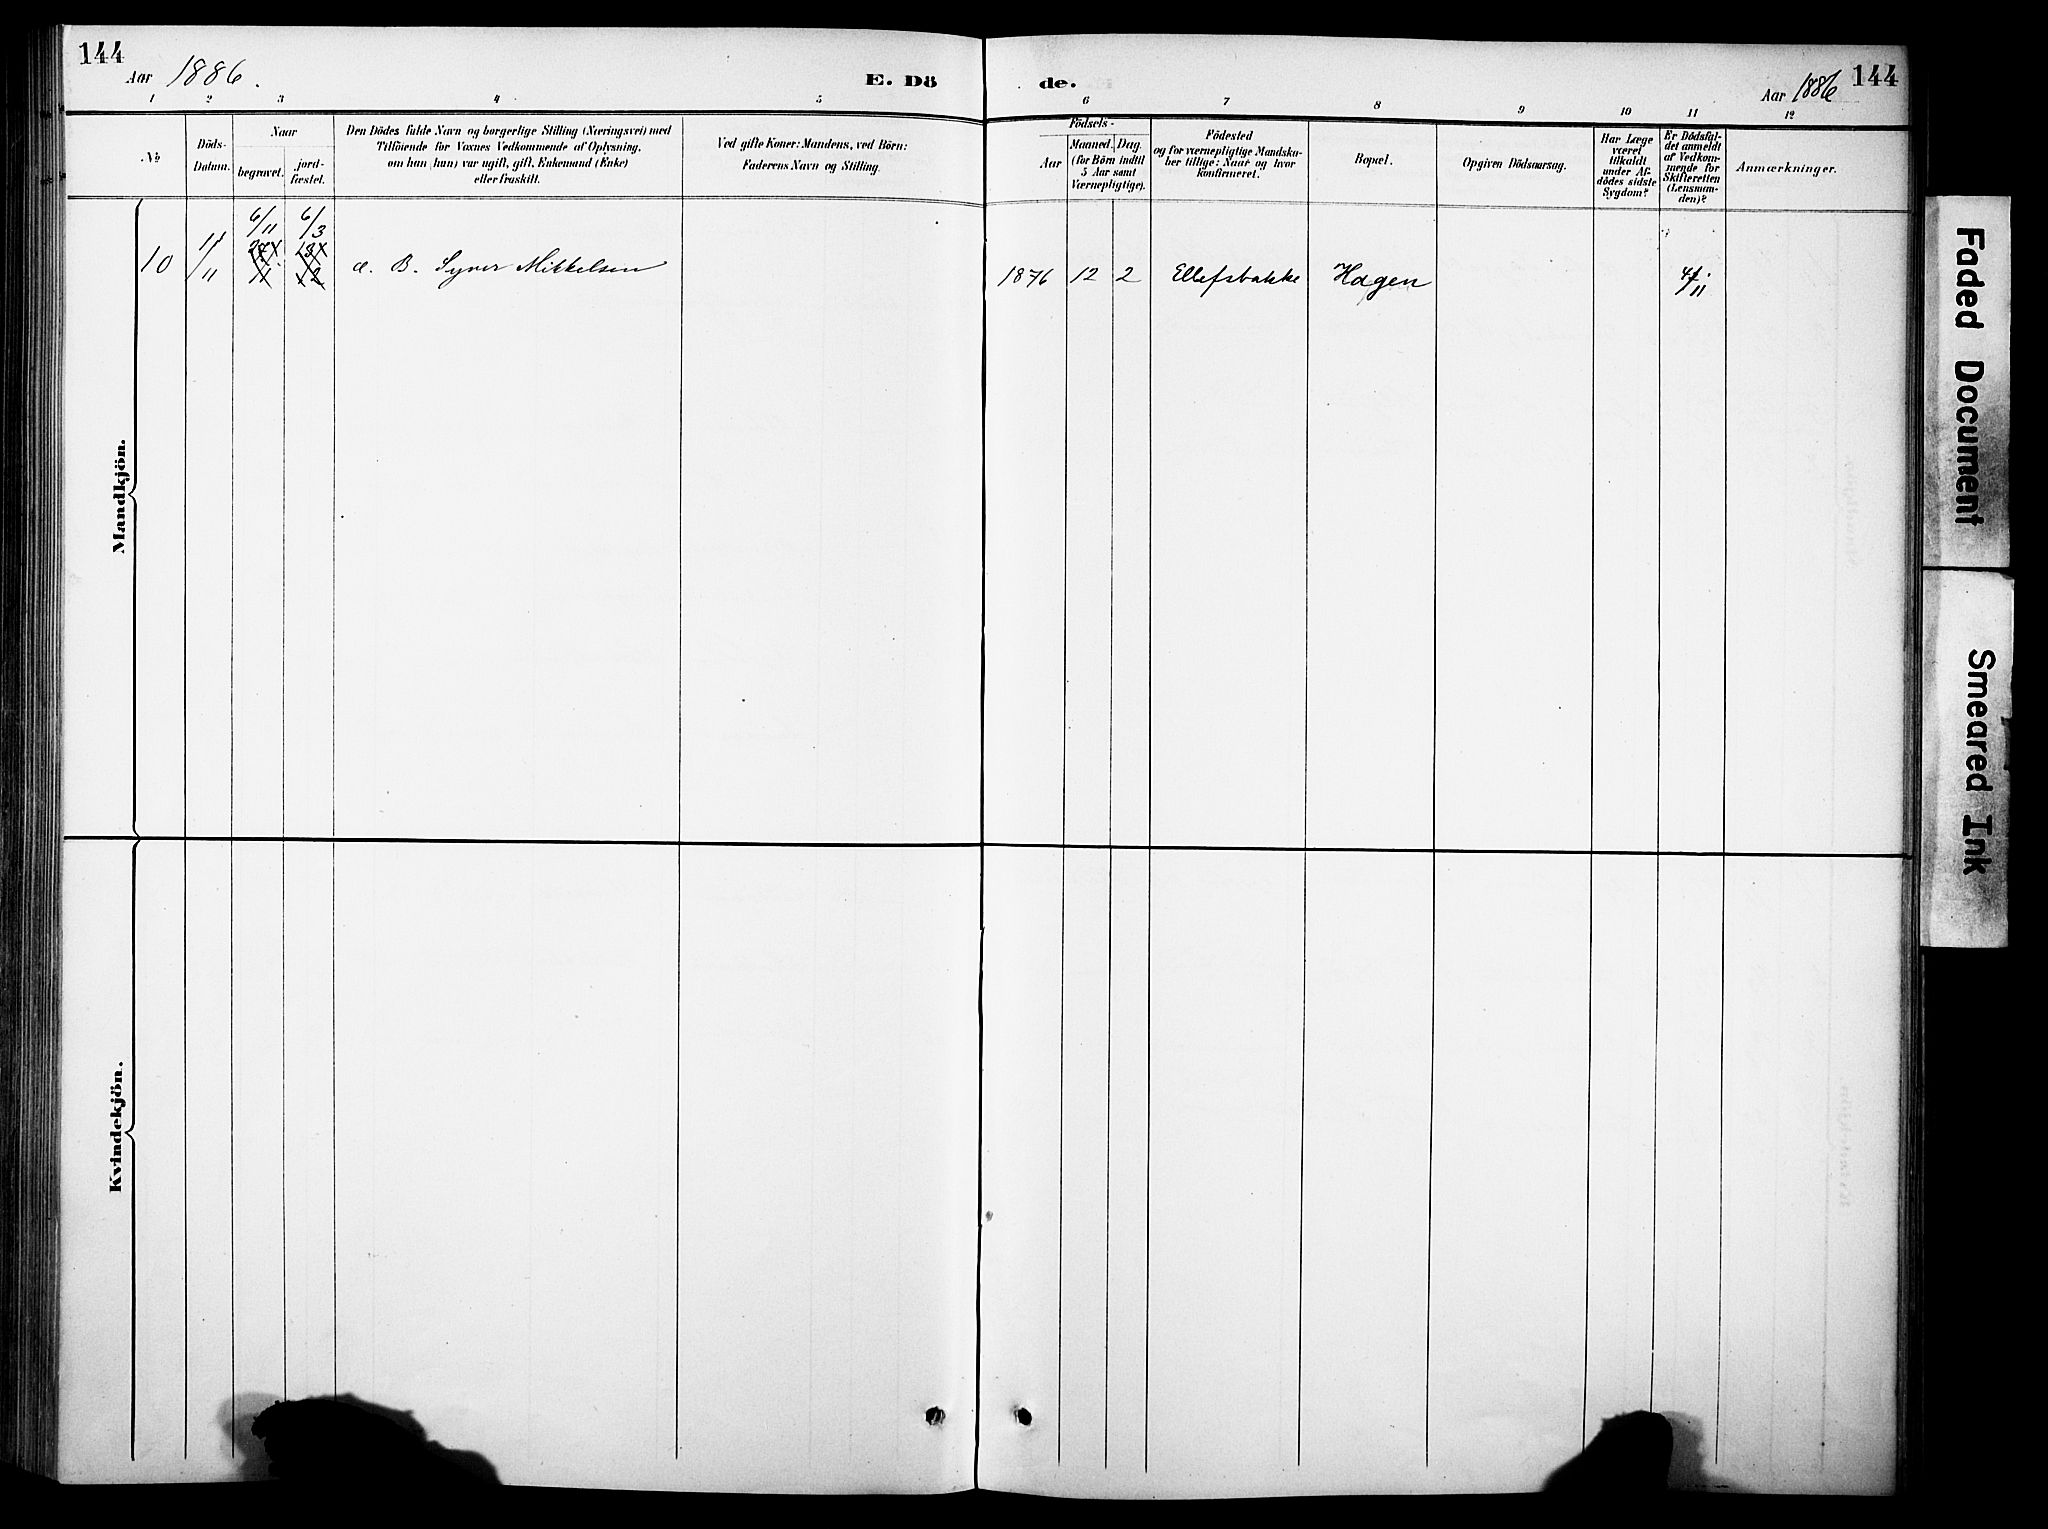 144
Aar 1886.
E. Dö
de.
Aar 1886
144
1 2 3 4 5 6 7 8 9 10 11 12
№
Döds-
Datum.
Naar
begravet.
jord-
fæstet.
Den Dödes fulde Navn og borgerlige Stilling (Næringsvei) med
Tilföiende for Voxnes Vedkommende af Oplysning,
om han (hun) var ugift, gift, Enkemand (Enke)
eller fraskilt.
Ved gifte Koner: Mandens, ved Börn:
Faderens Navn og Stilling.
Födsels-
Aar
Maaned.
Dag.
(for Börn indtil
5 Aar samt
Værnepligtige).
Födested
og for værnepligtige Mandska-
ber tillige: Naar og hvor
konfirmeret.
Bopæl.
Opgiven Dödsaarsag.
Har Læge
været
tilkaldt
under Af-
dödes sidste
Sygdom?
Er Dödsfal-
det anmeldt
af Vedkom-
mende for
Skifteretten
(Lensman-
den)?
Anmærkninger.
6/11 6/3
10 1/11 a. B. Syver Mikkelsen 1876 12 2 Ellefsbakke Hagen 4/11
Mandkjön.
Kvindekjön.
Faded Document
Smeared Ink